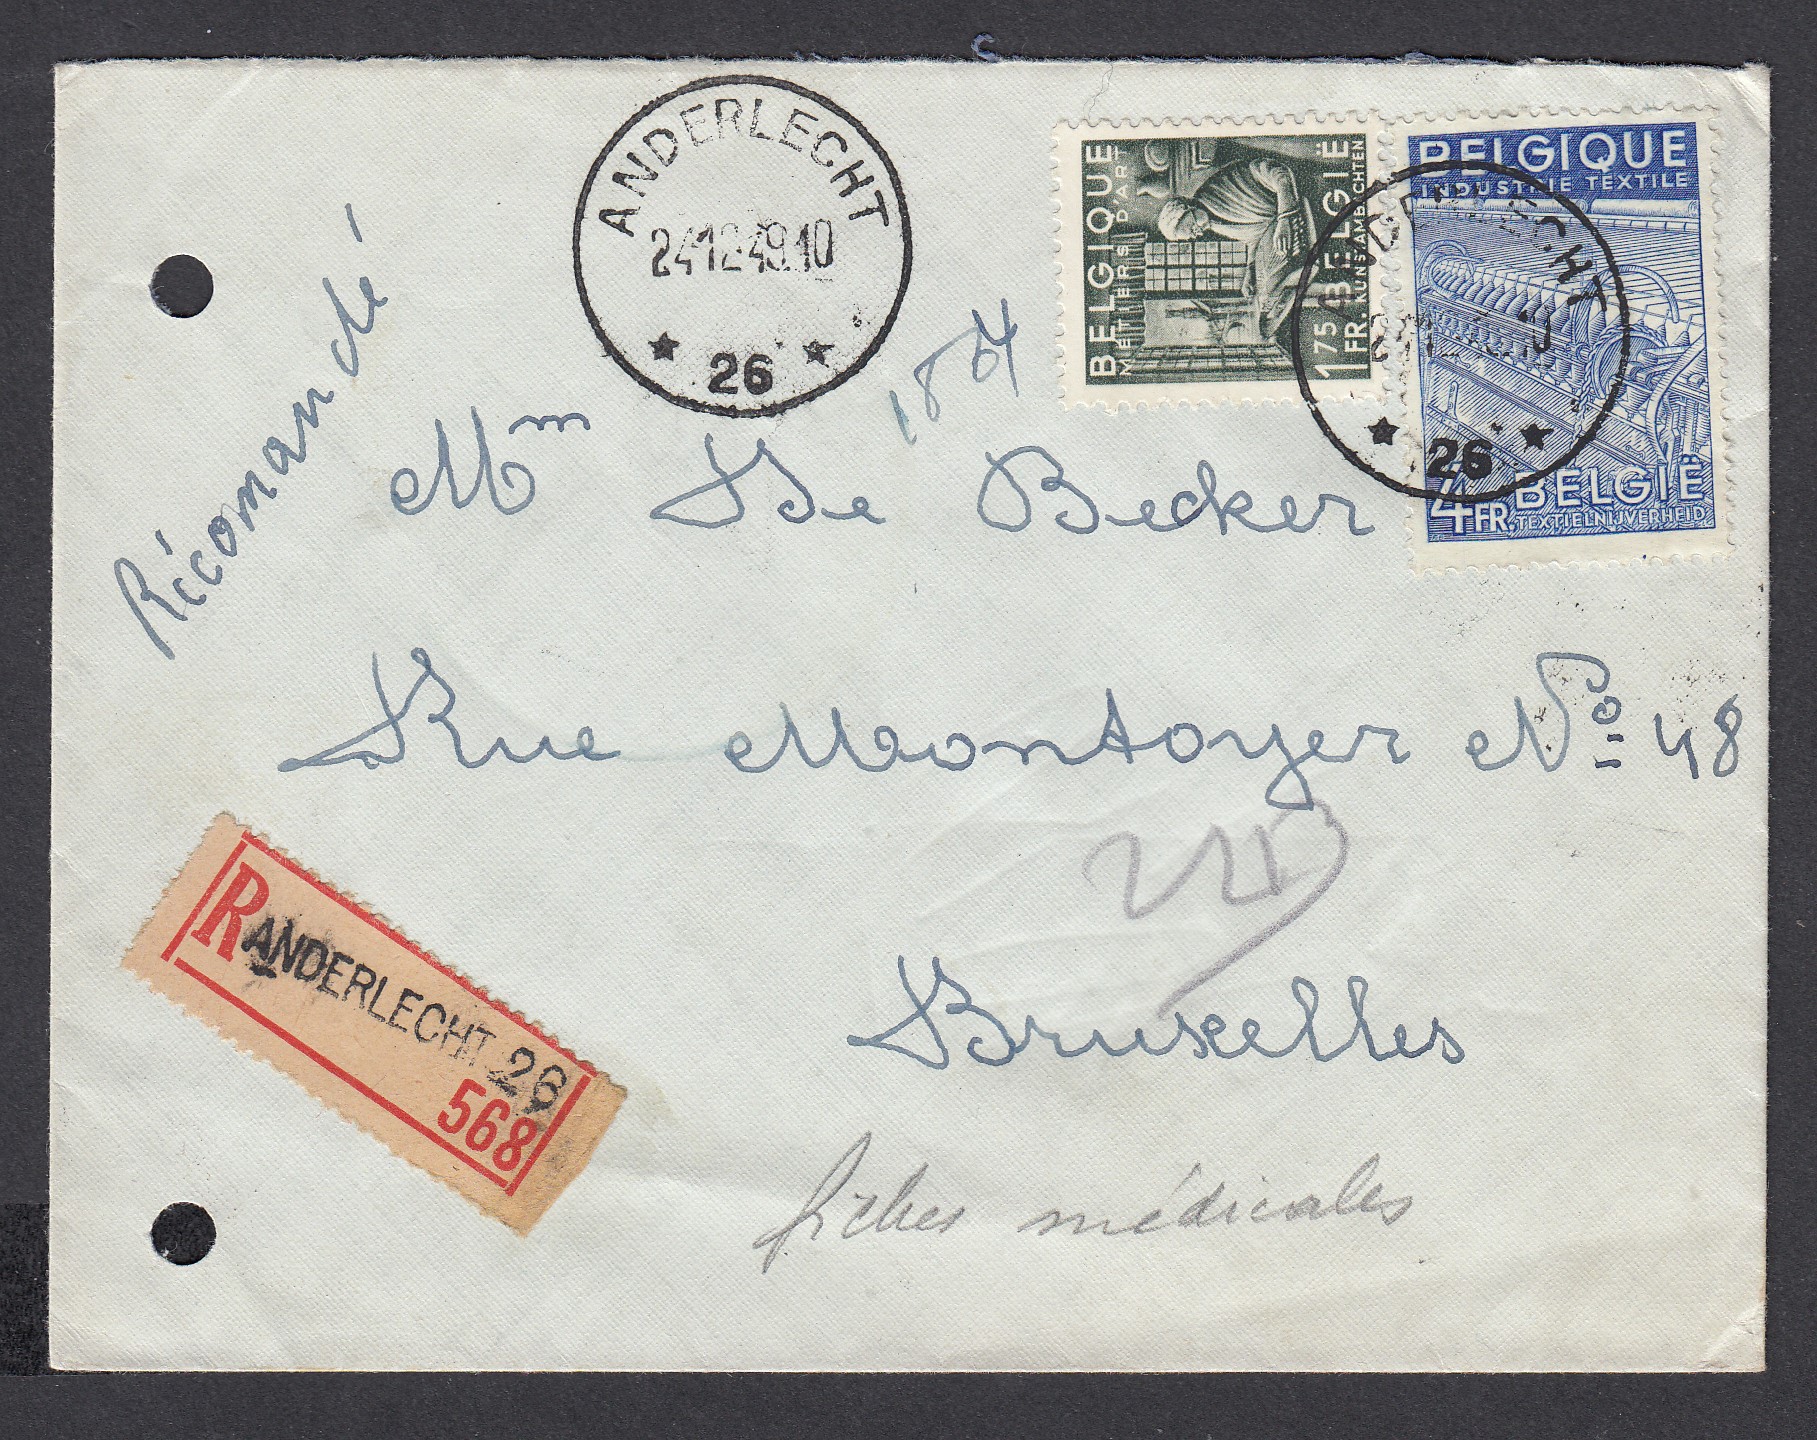 ANDERLECHT
24 12 49 10
★ 26 ★
BELGIQUE
METIERS D'ART
1 75 BELGIE
FR. KUNSTAMBACHTEN
BELGIQUE
INDUSTRIE TEXTILE
4 FR. BELGIE
TEXTIELNIJVERHEID
ANDERLECHT
★ 26 ★
Récomandé
Mm De Becker
Rue Montoyer No 48
Bruxelles
R ANDERLECHT 26
568
fiches médicales